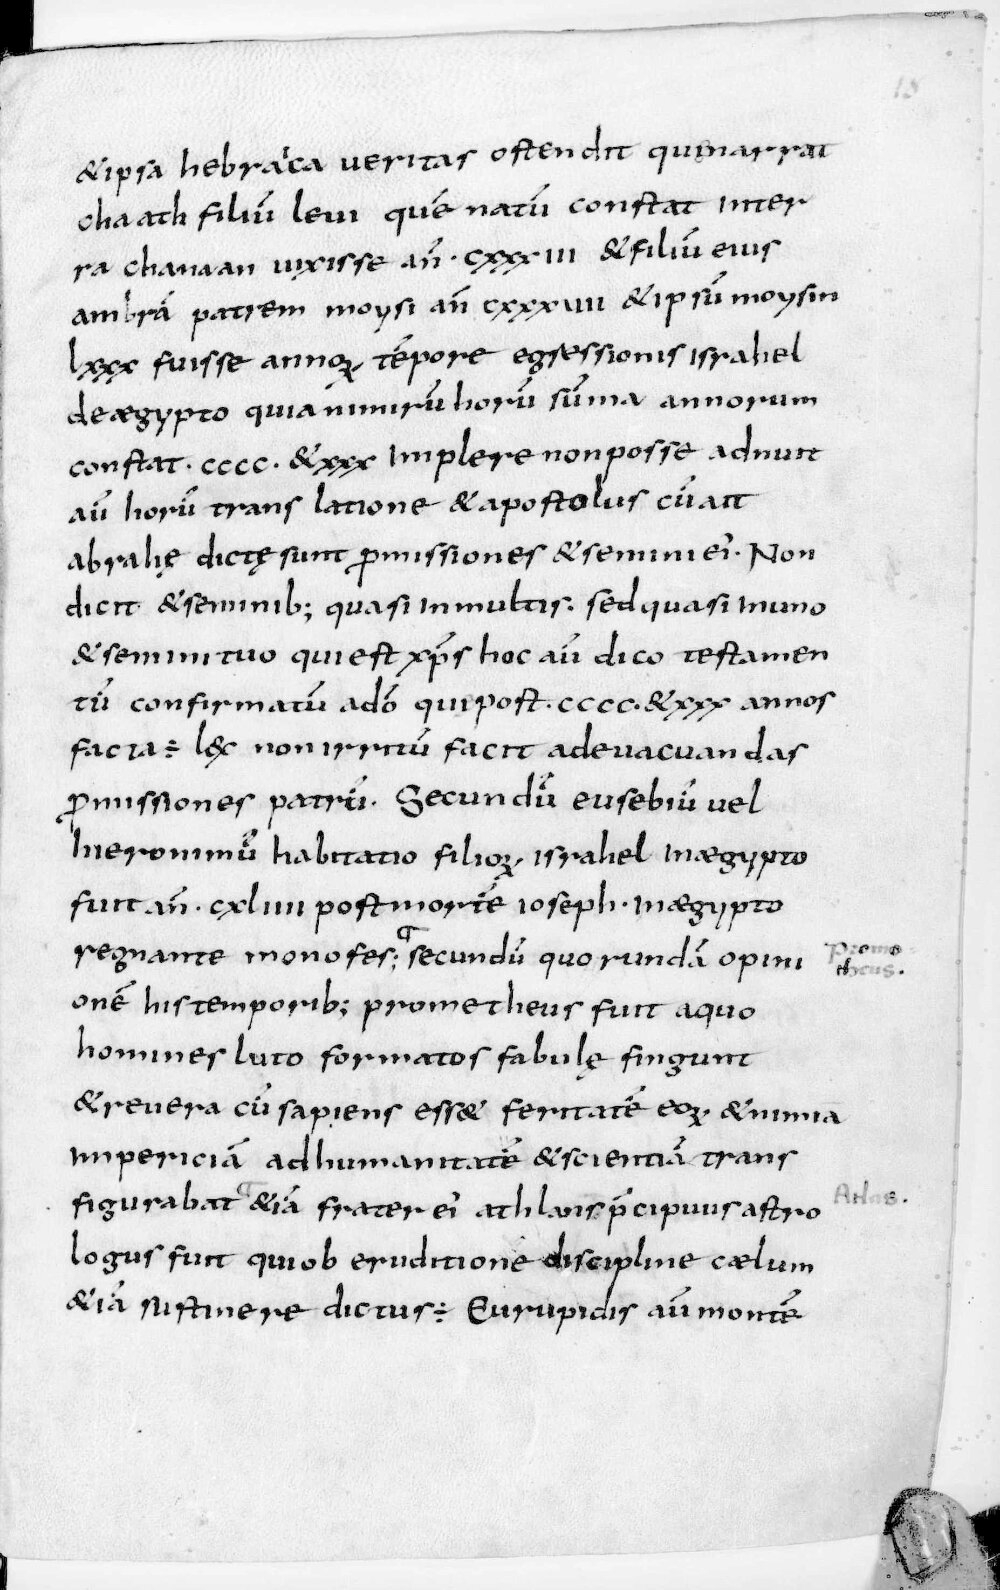 13
&ipsa hebraica ueritas ostendit quę narrat
chaath filiū leui quē natū constat inter
ra chanaan uixisse an̄. cxxxiii & filiū eius
ambrā patrem moysi an̄ cxxxvii & ipsū moysin
lxxx fuisse annoꝝ tēpore egressionis israhel
de ægypto quia nimirū horū sūma annorum
constat. cccc. & xxx implere non posse adnuit
aū horū trans latione & apostolus cū ait
abrahę dictę sunt ꝓmissiones & semini eī. Non
dicit & seminib; quasi in multis. sed quasi in uno
& semini tuo qui est xp̄s hoc aū dico testamen
tū confirmatū a dō qui post. cccc. & xxx annos
facta÷ lex non irritū facit ad euacuandas
ꝓmissiones patrū. Secundū eusebiū uel
hieronimū habitatio filioꝝ israhel in ægypto
fuit an̄. cxliiii post mortē ioseph. in ægypto
regnante monofes; secundū quorundā opini
Prome
theus.
onē his temporib; prometheus fuit a quo
homines luto formatos fabulę fingunt
& reuera cū sapiens ess& feritatē eoꝝ & nimia
impericiā ad humanitatē & scientiā trans
figurabat &iā frater eī athlans p̄cipuus astro
Atlas.
logus fuit qui ob eruditionē discipline cælum
&iā sustinere dictus÷ Eurupidis aū montē